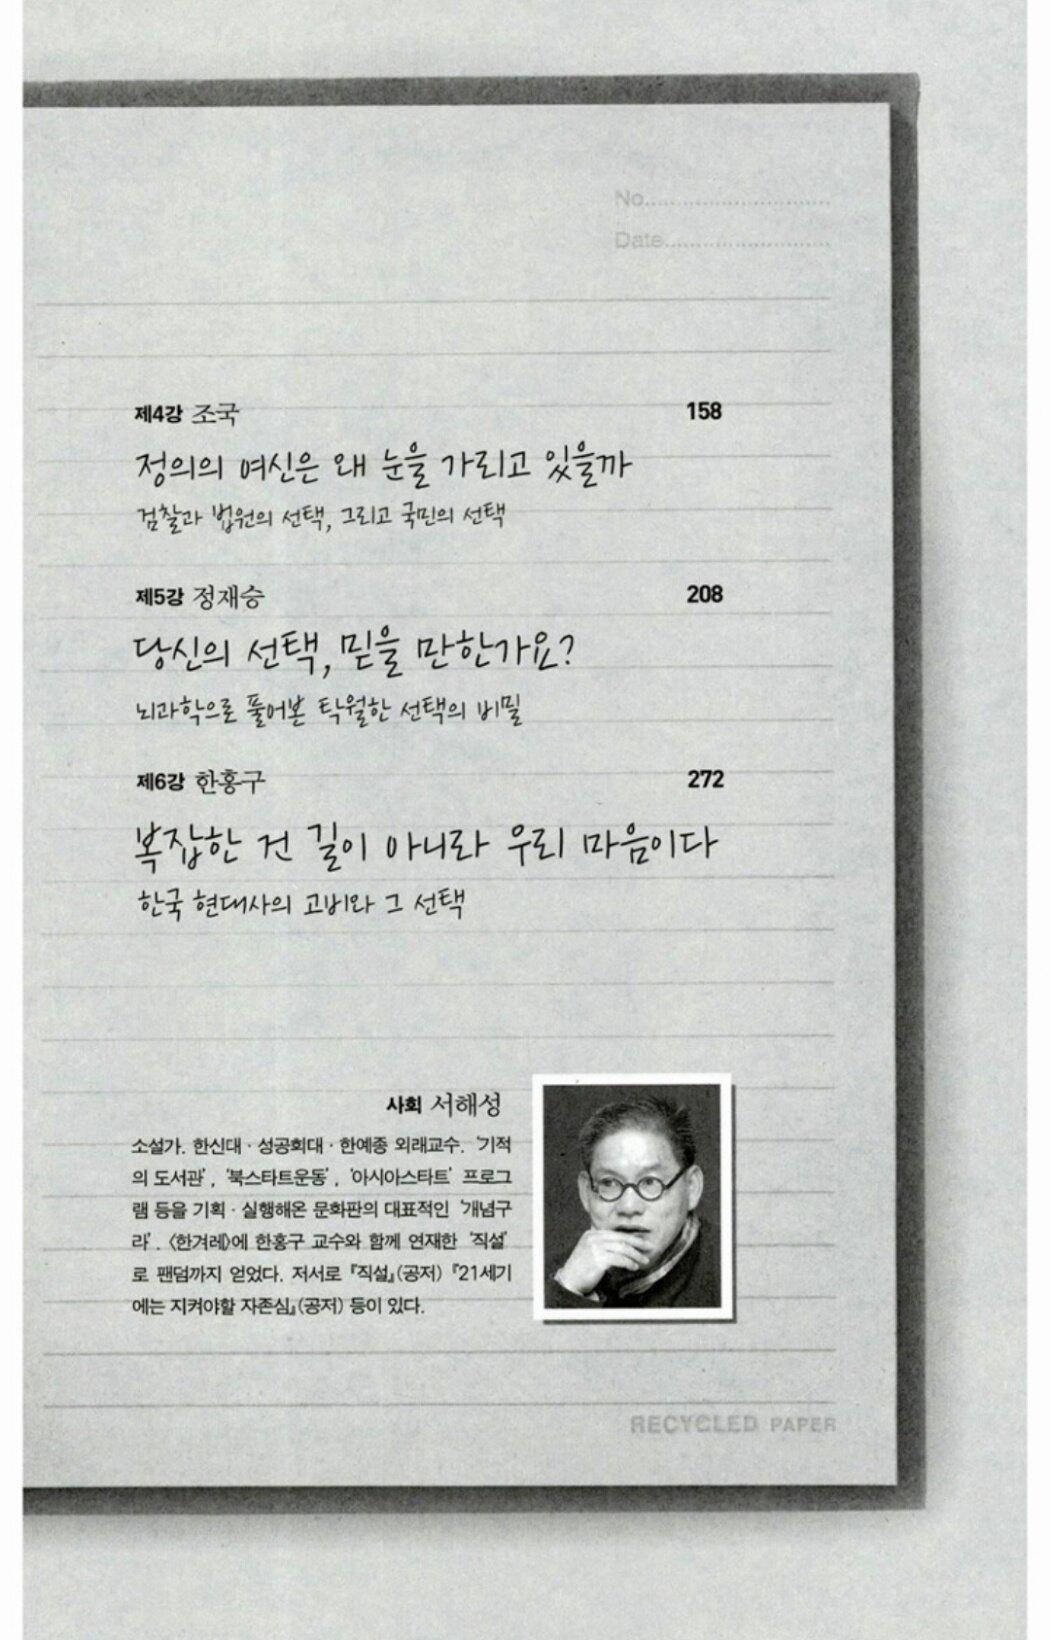 No.
Date
제4강 조국 158
정의의 여신은 왜 눈을 가리고 있을까
검찰과 법원의 선택, 그리고 국민의 선택
제5강 정재승 208
당신의 선택, 믿을 만한가요?
뇌과학으로 풀어본 탁월한 선택의 비밀
제6강 한홍구 272
복잡한 건 길이 아니라 우리 마음이다
한국 현대사의 고비와 그 선택
사회 서해성
소설가. 한신대 · 성공회대 · 한예종 외래교수. ‘기적
의 도서관’, ‘북스타트운동’, ‘아시아스타트’ 프로그
램 등을 기획 · 실행해온 문화판의 대표적인 ‘개념구
라’. 〈한겨레〉에 한홍구 교수와 함께 연재한 ‘직설’
로 팬덤까지 얻었다. 저서로 『직설』(공저) 『21세기
에는 지켜야할 자존심』(공저) 등이 있다.
RECYCLED PAPER